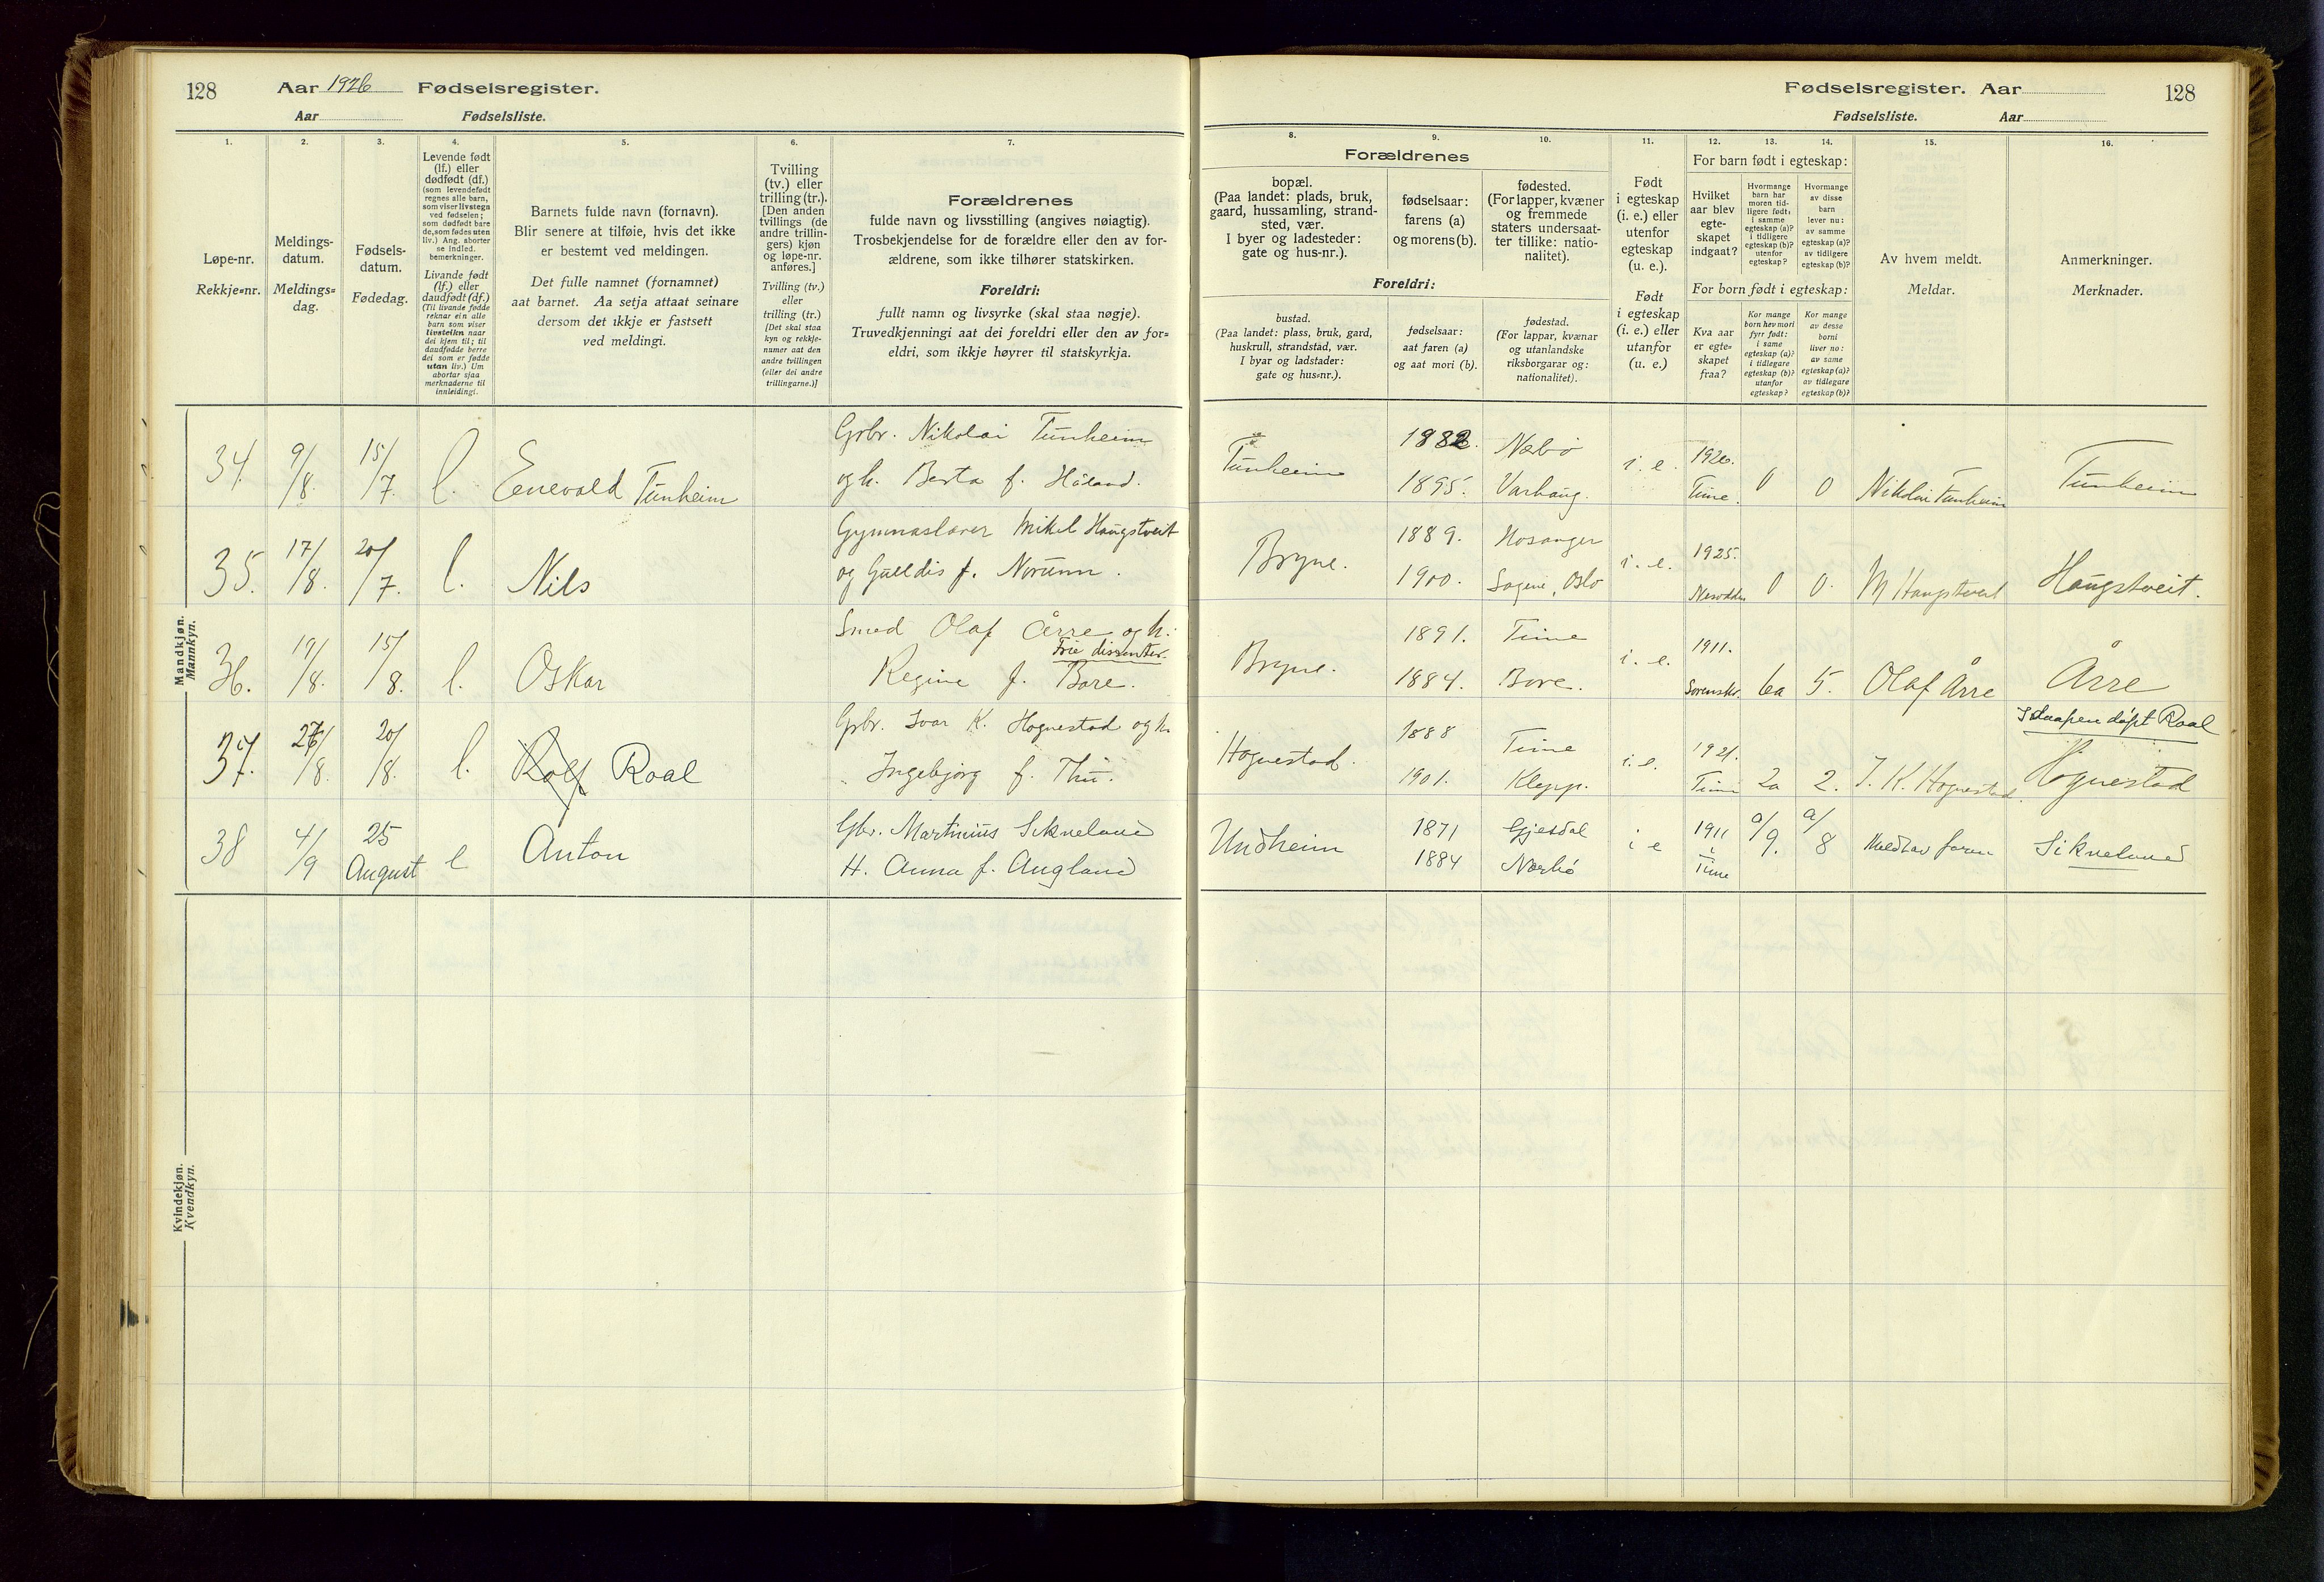 128 Aar 1926 Fødselsregister.
Aar Fødselsliste.
1. 2. 3. 4. 5. 6. 7.
Løpe-nr.
Rekkje=nr.
Meldings-
datum.
Meldings=
dag.
Fødsels-
datum.
Fødedag.
Levende født
(lf.) eller
dødfødt (df.)
(som levendefødt
regnes alle barn,
som viser livstegn
ved fødselen;
som dødfødt bare
de, som fødes uten
liv.) Ang. aborter
se indled.
bemerkninger.
Livande født
(lf.) eller
daudfødt (df.)
(Til livande fødde
reknar ein alle
barn som viser
livsteikn naar
dei kjem til; til
daudfødde berre
dei som er fødde
utan liv.) Um
abortar sjaa
merknaderne til
innleidingi.
Barnets fulde navn (fornavn).
Blir senere at tilføie, hvis det ikke
er bestemt ved meldingen.
Det fulle namnet (fornamnet)
aat barnet. Aa setja attaat seinare
dersom det ikkje er fastsett
ved meldingi.
Tvilling
(tv.) eller
trilling (tr.).
[Den anden
tvillings (de
andre trillin-
gers) kjøn
og løpe-nr.
anføres.]
Tvilling (tv.)
eller
trilling (tr.)
[Det skal staa
kyn og rekkje-
numer aat den
andre tvillingen
(eller dei andre
trillingarne.)]
Forældrenes
fulde navn og livsstilling (angives nøiagtig).
Trosbekjendelse for de forældre eller den av for-
ældrene, som ikke tilhører statskirken.
Foreldri:
fullt namn og livsyrke (skal staa nøgje).
Truvedkjenningi aat dei foreldri eller den av for=
eldri, som ikkje høyrer til statskyrkja.
Mandkjøn.
Mannkyn.
34. 9/8. 15/7. l. Enevald Tunheim
Grbr. Nikolai Tunheim
og h. Berta f. Håland.
35. 17/8. 20/7. l. Nils
Gymnaslærer Mikel Haugstveit
og Gulldis f. Norunn.
36. 19/8. 15/8. l. Oskar
Smed Olaf Årre og h.
Frie dissenter.
Regine f. Bore.
37. 26/8. 20/8. l. Rolf Roal
Grbr. Ivar K. Hognestad og h.
Ingebjørg f. Thu.
38 4/9 25 August l Anton
Gbr. Martinius Sikveland
H. Anna f. Augland
Kvindekjøn.
Kvendkyn.
Fødselsregister. Aar 128
Fødselsliste. Aar
8. 9. 10. 11. 12. 13. 14. 15. 16.
Forældrenes
bopæl.
(Paa landet: plads, bruk,
gaard, hussamling, strand-
sted, vær.
I byer og ladesteder:
gate og hus-nr.).
fødselsaar:
farens (a)
og morens (b).
fødested.
(For lapper, kvæner
og fremmede
staters undersaat-
ter tillike: natio-
nalitet).
Foreldri:
bustad.
(Paa landet: plass, bruk, gard,
huskrull, strandstad, vær.
I byar og ladstader:
gate og hus=nr.).
fødselsaar:
aat faren (a)
og aat mori (b).
fødestad.
(For lappar, kvænar
og utanlandske
riksborgarar og:
nationalitet).
Født
i egteskap
(i. e.) eller
utenfor
egteskap
(u. e.).
Født
i egteskap
(i. e.) eller
utanfor
(u. e.)
For barn født i egteskap:
Hvilket
aar blev
egte-
skapet
indgaat?
Hvormange
barn har
moren tid-
ligere født:
i samme
egteskap (a)?
i tidligere
egteskap (b)?
utenfor
egteskap?
Hvormange
av disse
barn
lever nu:
av samme
egteskap (a)?
av tidligere
egteskap (b)?
For born født i egteskap:
Kva aar
er egte=
skapet
fraa?
Kor mange
born hev mori
fyrr født:
i same
egteskap (a)?
i tidlegare
egteskap (b)?
utanfor
egteskap?
Kor mange
av desse
borni
liver no:
av same
egteskap (a)?
av tidlegare
egteskap (b)?
Av hvem meldt.
Meldar.
Anmerkninger.
Merknader.
Tunheim 1882. Nærbø
1895. Varhaug. i. e. 1926. Time. 0 0 Nikolai Tunheim Tunheim
Bryne. 1889. Hosanger
1900. Sagene, Oslo i. e. 1925. Nesodden 0 0. M Haugstveit Haugstveit.
Bryne. 1891. Time
1884. Bore. i. e. 1911. Sorenskr. 6a 5. Olaf Årre Årre
I daapen døpt Roal
Hognestad. 1888 Time
1901. Klepp. i. e. 1921. Time 2a 2. I. K. Hognestad. Hognestad
Undheim 1871 Gjesdal
1884 Nærbø i e 1911 i Time a/9. a/8 Meldt av faren Sikveland